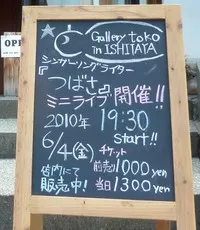 OPE
Gallery toko
in ISHITAYA
シンガーソングライター
『つばさ』
ミニライブ開催!!
2010年 19:30
start!!
6/4(金) チケット
前売り1000yen
店内にて
販売中! 当日1300yen